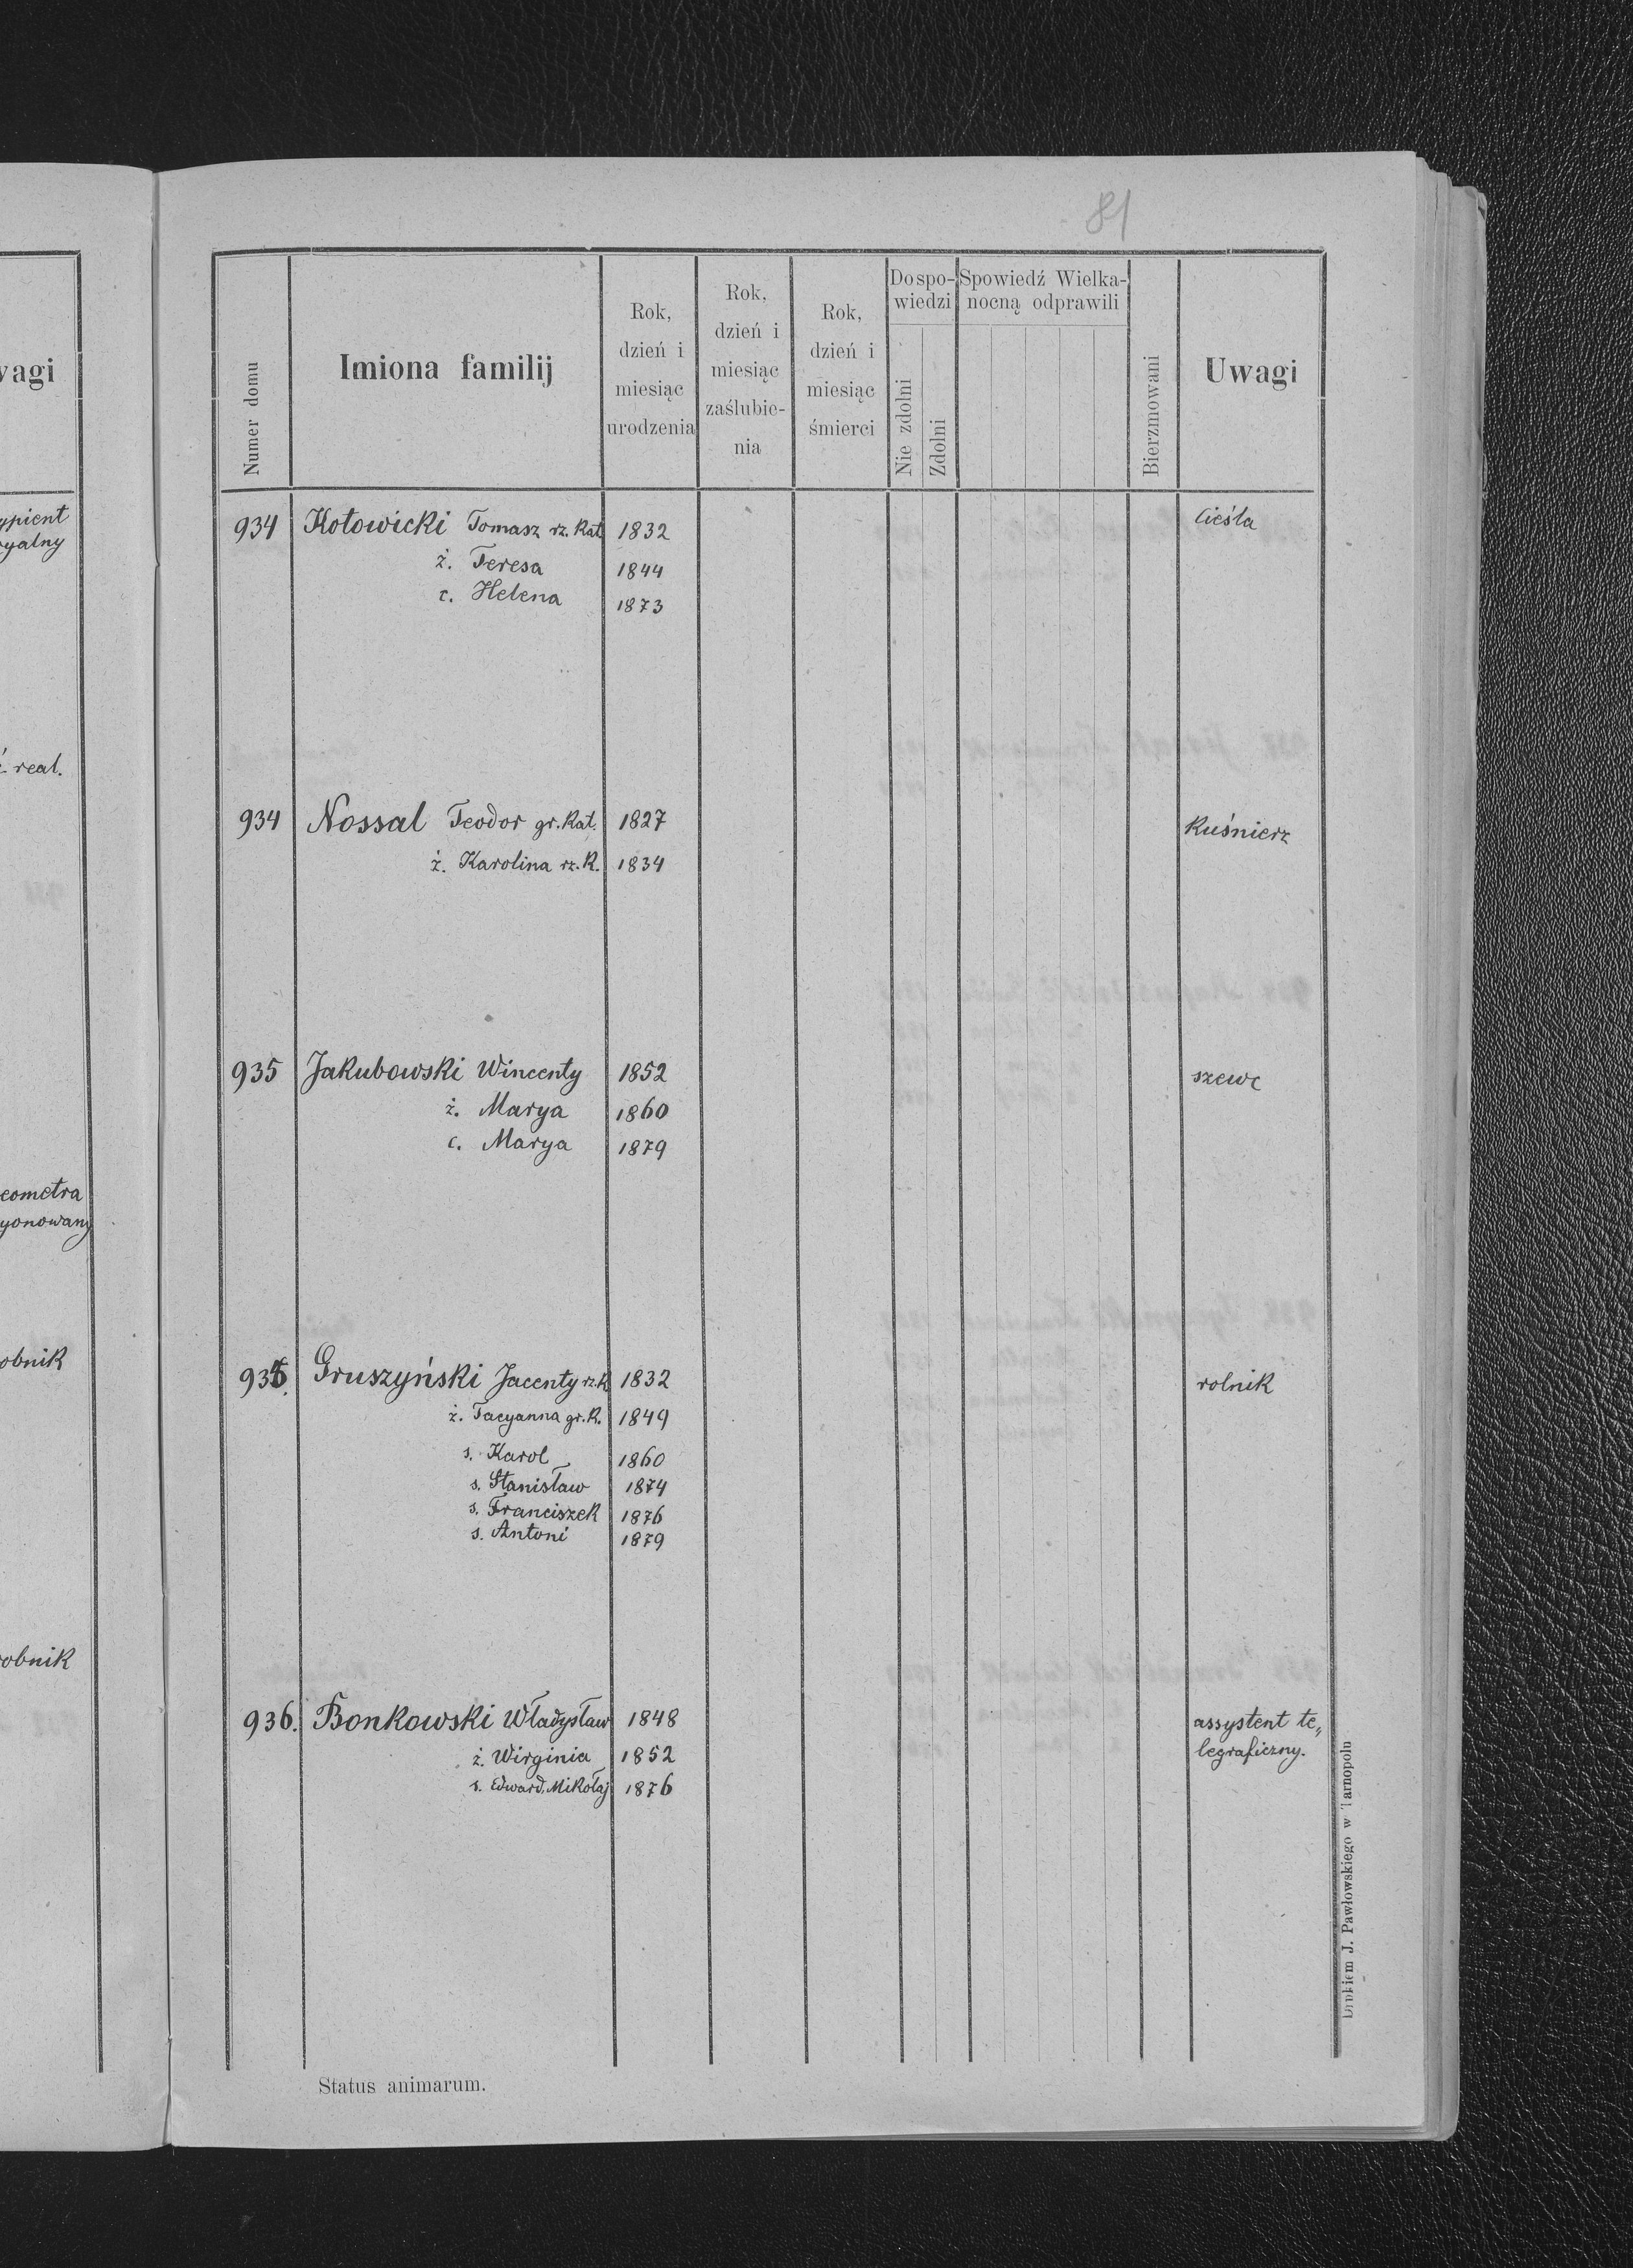 81
vagi
Numer domu
Imiona familij
Rok, dzień i miesiąc urodzenia
Rok, dzień i miesiąc zaślubienia
Rok, dzień i miesiąc śmierci
Do spowiedzi
Nie zdolni
Zdolni
Spowiedź Wielkanocną odprawili
Bierzmowani
Uwagi
ypient
yalny
real.
eometra
yonowany
obnik
obnik
934 Kotowicki Tomasz rz. Kat. 1832 Cieśla
ż. Teresa 1844
c. Helena 1873
934 Nossal Teodor gr. Kat. 1827 Kuśnierz
ż. Karolina rz. K. 1834
935 Jakubowski Wincenty 1852 szewc
ż. Marya 1860
c. Marya 1879
935. Gruszyński Jacenty rz. K. 1832 rolnik
ż. Tacyanna gr. K. 1849
s. Karol 1860
s. Stanisław 1874
s. Franciszek 1876
s. Antoni 1879
936. Bonkowski Władysław 1848 assystent te„
ż. Wirginia 1852 legraficzny.
s. Edward, Mikołaj 1876
Status animarum.
Drukiem J. Pawłowskiego w Tarnopolu